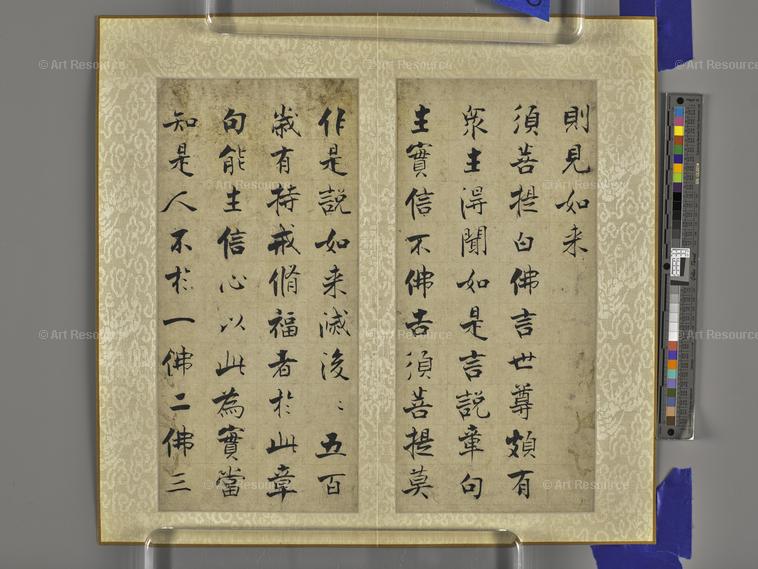 則見如来
須菩提白佛言世尊頗有
衆生淂聞如是言説章句
生實信不佛告須菩提莫
作是説如来滅後ミ五百
歳有持戒脩福者扵此章
句能生信心以此為實當
知是人不扵一佛二佛三
© Art Resource
© Art Resource
© Art Resource
© Art Resource
© Art Resource
© Art Resource
© Art Resource
© Art Resource
© Art Resource
© Art Resource